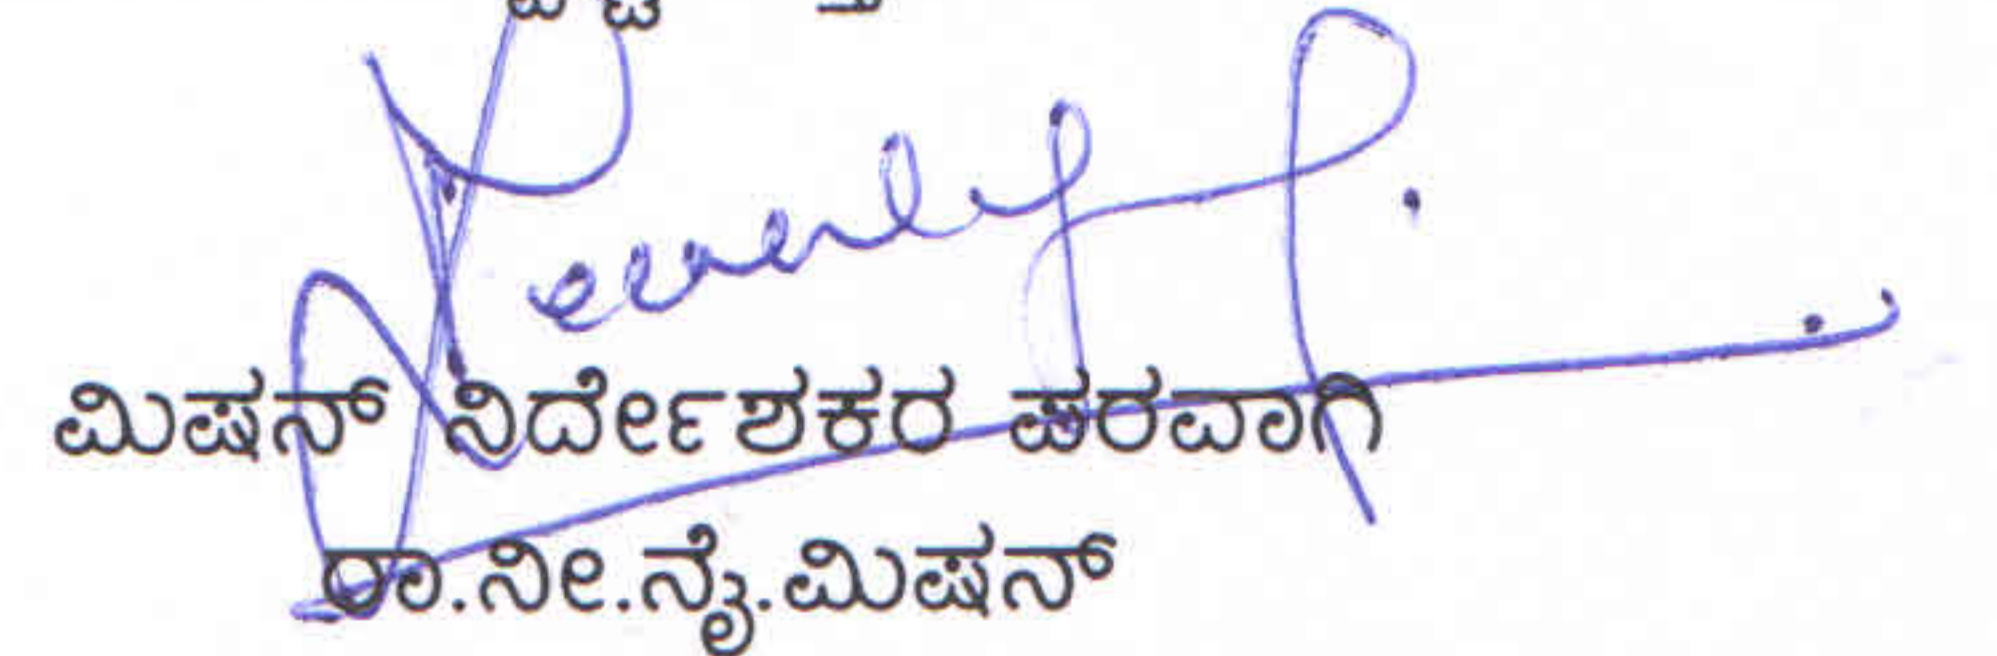 ಮಿಷನ್ ನಿರ್ದೇಶಕರ ಪರವಾಗಿ
ರಾ.ನೀ.ನೈ.ಮಿಷನ್